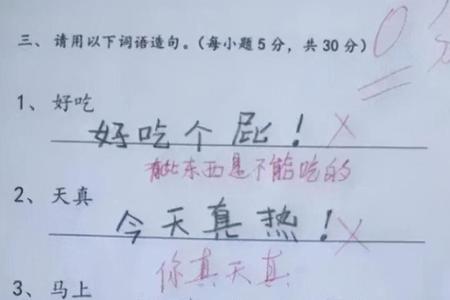 三、请用以下词语造句。(每小题5分，共30分)
0分
1、好吃
好吃个屁！
有些东西是不能吃的
2、天真
今天真热！
你真天真
3、马上